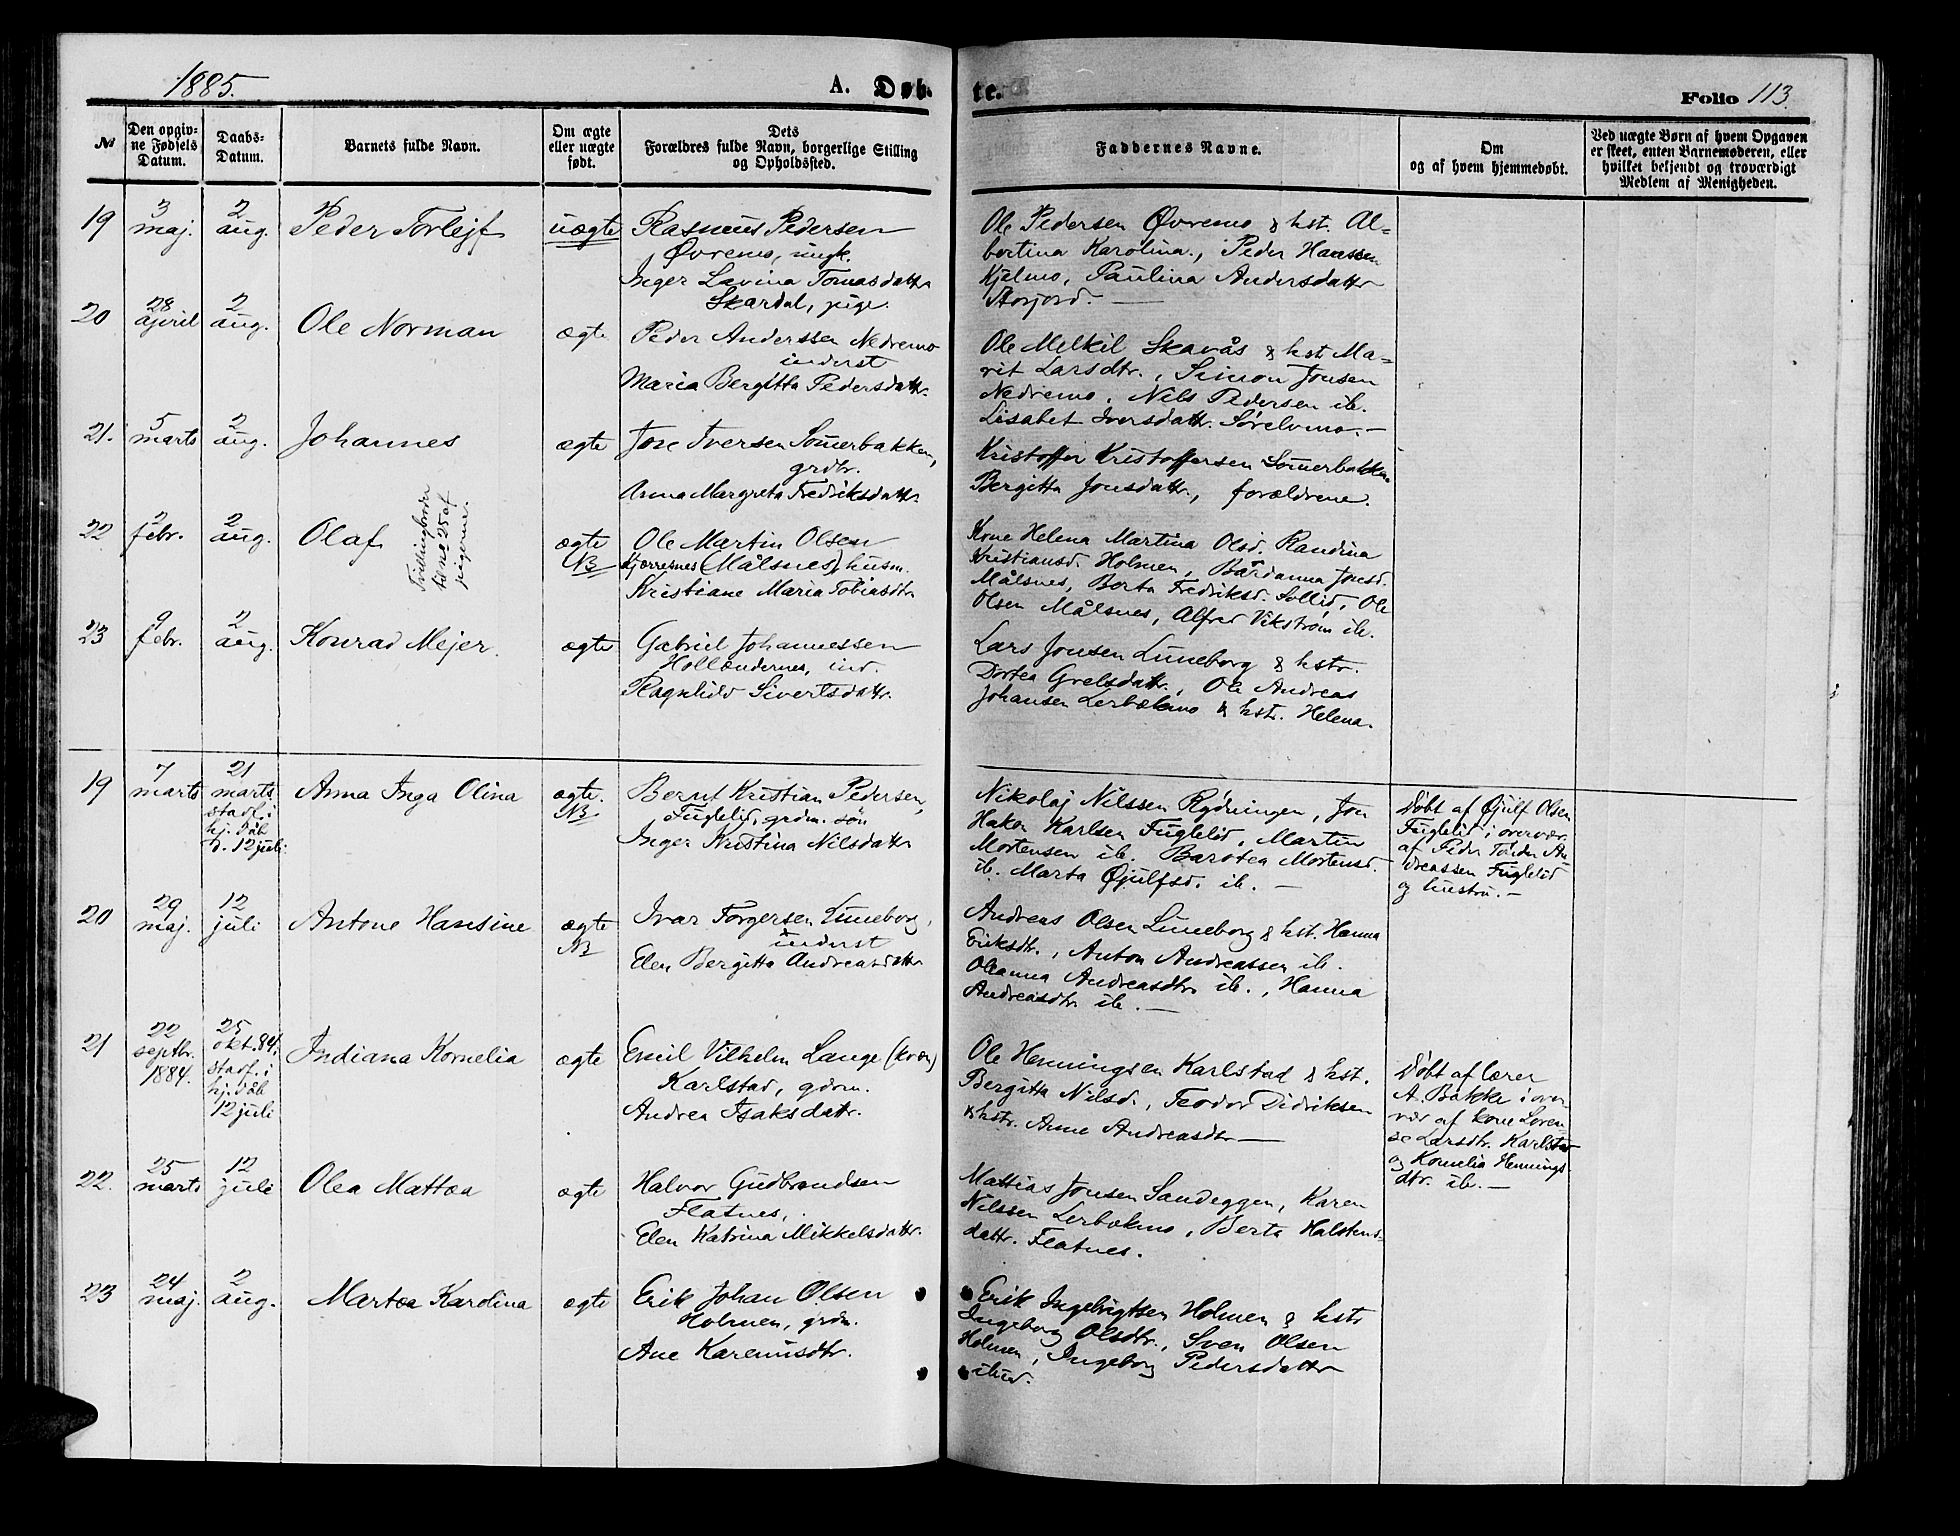 1885.
A. Døb-
te.
Folio 113.
№
Den opgiv-
ne Fødsels
Datum.
Daabs-
Datum.
Barnets fulde Navn.
Om ægte
eller uægte
født.
Dets
Forældres fulde Navn, borgerlige Stilling
og Opholdssted.
Faddernes Navne.
Om
og af hvem hjemmedøbt.
Ved uægte Børn af hvem Opgaven
er skeet, enten Barnemoderen, eller
hvilket bekjendt og troværdigt
Medlem af Menigheden.
19
3
maj.
2
aug.
Peder Torlejf
uægte
Rasmus Pedersen
Øvremo, ungk.
Inger Lavina Tomasdattr
Skardal, pige.
Ole Pedersen Øvremo & hst. Al-
bertina Karolina., Peder Hanssen
Kjelmo, Paulina Andersdattr
Storjord. —
20
28
april
2
aug.
Ole Norman
ægte
Peder Anderssen Nedremo
inderst
Maria Bergitta Pedersdattr.
Ole Melkil Skavås & hst Ma-
rit Larsdtr., Simon Jonsen
Nedremo, Nils Pedersen ib.
Lisabet Iversdattr. Sørelvmo. —
21.
5
marts
2
aug.
Johannes
ægte
Jon Iversen Somerbakken,
grdbr.
Anna Margreta Fredriksdattr.
Kristoffer Kristoffersen Somerbakken
Bergitta Jonsdattr., forældrene.
22
2
febr.
2
aug.
Olaf
Tvillingbroder
til no 25 af
pigerne.
ægte
NB
Ole Martin Olsen
Kjerresnes (Målsnes), husm.
Kristiane Maria Tobiasdtr
Kone Helena Martina Olsd. Randina
Kristiansd. Holmen, Bårdanna Jonsd.
Målsnes, Berta Fredriksd. Sollid, Ole
Olsen Målsnes, Alfred Vikstrøm ib.
23
9
febr.
2
aug.
Konrad Mejer.
ægte
Gabriel Johannessen
Hollendernes, ind.
Ragnhild Sivertsdattr.
Lars Jonsen Luneborg & hstr.
Dortea Grelsdattr., Ole Andreas
Johansen Lerbekmo & hstr. Helena.
19
7
marts
21
marts
stadf. i
hj. dåb
d. 12 juli
Anna Inga Olina
ægte.
NB
Bernt Kristian Pedersen,
Fuglelid, grdm. søn
Inger Kristina Nilsdattr
Nikolaj Nilssen Rydningen, Jon
Hakon Karlsen Fuglelid, Martin
Mortensen ib. Barotea Mortensd.
ib. Marta Øjulfsd. ib. —
Døbt af Øjulf Olsen
Fuglelid i overvær.
af Peder Tånder An-
dreassen Fuglelid
og hustru. —
20
29
maj.
12
juli
Antone Hansine
ægte
NB
Ivar Torgersen Luneborg,
inderst
Elen Bergitta Andreasdattr
Andreas Olsen Luneborg & hst. Hanna
Eriksdtr., Anton Andreassen ib.
Oleanna Andreasdtr. ib., Hanna
Andreasdtr. ib. —
21
22
septbr.
1884.
25
okt. 84.
stadf. i
hj. dåb
12 juli
Indiana Kornelia
ægte
Emil Vilhelm Lange (kvæn)
Karlstad, grdm.
Andrea Isaksdattr.
Ole Henningsen Karlstad & hst.
Bergitta Nilsd., Teodor Didriksen
& hstr. Anne Andreasdtr —
Døbt af lærer
A. Bakke i over-
vær af kone Loren-
se Larsdtr. Karlstad
og Kornelia Hennings-
dtr. ib. —
22.
25
marts
12
juli
Olea Mattea
ægte
Halvor Gudbrandsen
Flatnes,
Elen Katrina Mikkelsdattr.
Mattias Jonsen Sandeggen, Karen
Nilssen Lerbekmo, Berta Halstens-
dattr. Flatnes.
23
24
maj.
2
aug.
Martea Karolina
ægte
Erik Johan Olsen
Holmen, grdm.
Ane Karenusdtr.
Erik Ingebrigtsen Holmen & hstr
Ingeborg Olsdtr., Sven Olsen
Holmen, Ingeborg Pedersdattr
ibid.